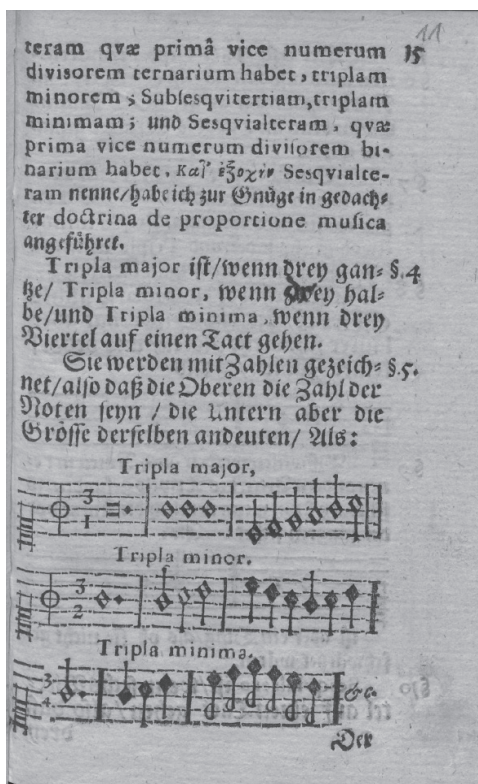 11
teram qvæ primâ vice numerum 15
divisorem ternarium habet, triplam
minorem; Subsesqvitertiam, triplam
minimam; und Sesqvialteram, qvæ
prima vice numerum divisorem bi-
narium habet, Sesqvialte-
ram nenne/ habe ich zur Gnüge in gedach-
ter doctrina de proportione musica
angeführet.
Tripla major ist/ wenn drey gan- §. 4
tze/ Tripla minor, wenn drey hal-
be/ und Tripla minima, wenn drey
Viertel auf einen Tact gehen.
Sie werden mit Zahlen gezeich- §. 5.
net/ also daß die Oberen die Zahl der
Noten seyn / die Untern aber die
Grösse derselben andeuten/ Als:
Tripla major,
3
1
Tripla minor.
3
2
Tripla minima.
3
4
&c.
Der